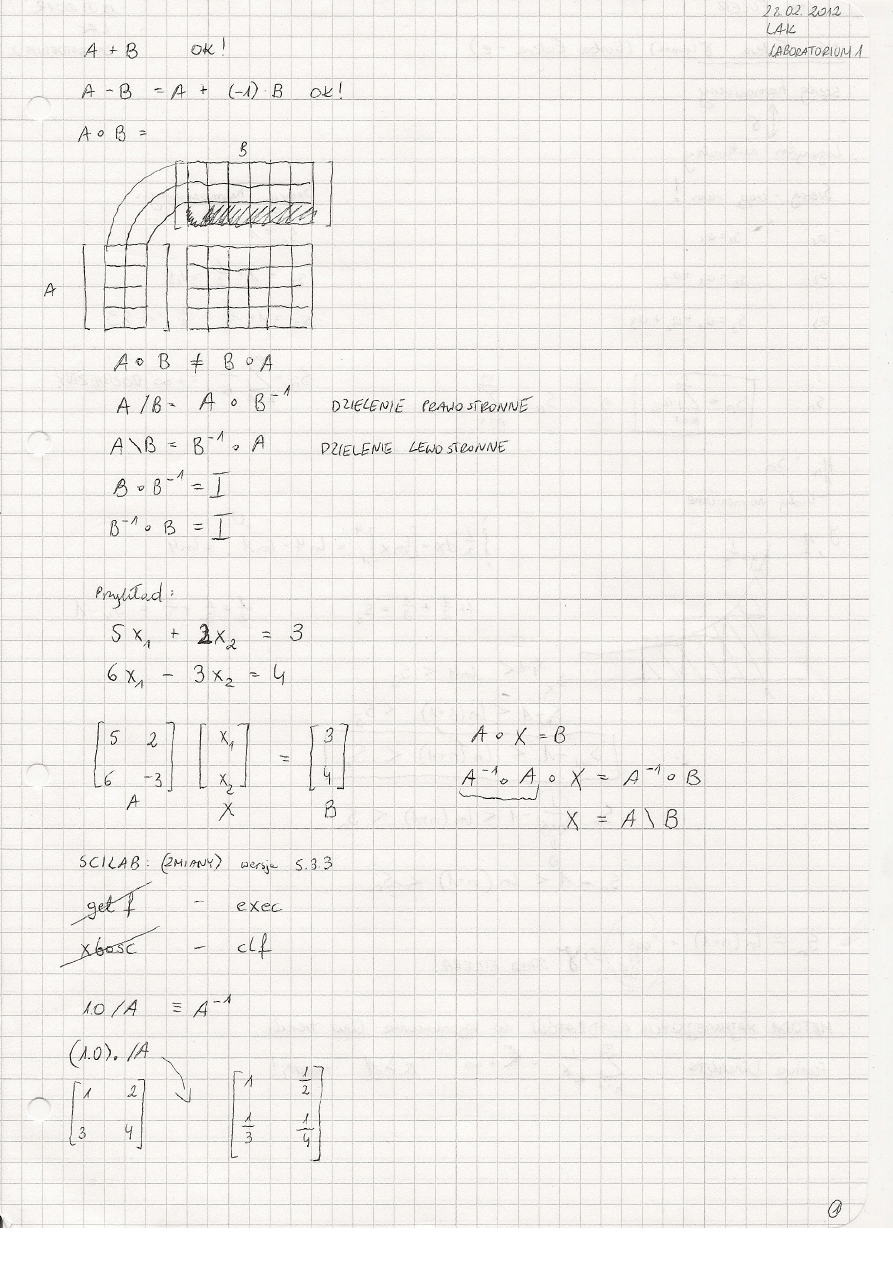 22.02.2012
LAK
LABORATORIUM 1
A + B OK!
A - B = A + (-1) · B OK!
A ∘ B =
B
A
A ∘ B ≠ B ∘ A
A / B = A ∘ B⁻¹ DZIELENIE PRAWOSTRONNE
A \ B = B⁻¹ ∘ A DZIELENIE LEWOSTRONNE
B ∘ B⁻¹ = I
B⁻¹ ∘ B = I
Przykład:
5x₁ + 2x₂ = 3
6x₁ - 3x₂ = 4
[5 2; 6 -3] [x₁; x₂] = [3; 4]
A X B
A ∘ X = B
A⁻¹ ∘ A ∘ X = A⁻¹ ∘ B
X = A \ B
SCILAB: (ZMIANY) wersja 5.3.3
getf - exec
xbasc - clf
1.0 / A ≡ A⁻¹
(1.0) ./A
[1 2; 3 4] [1 1/2; 1/3 1/4]
1